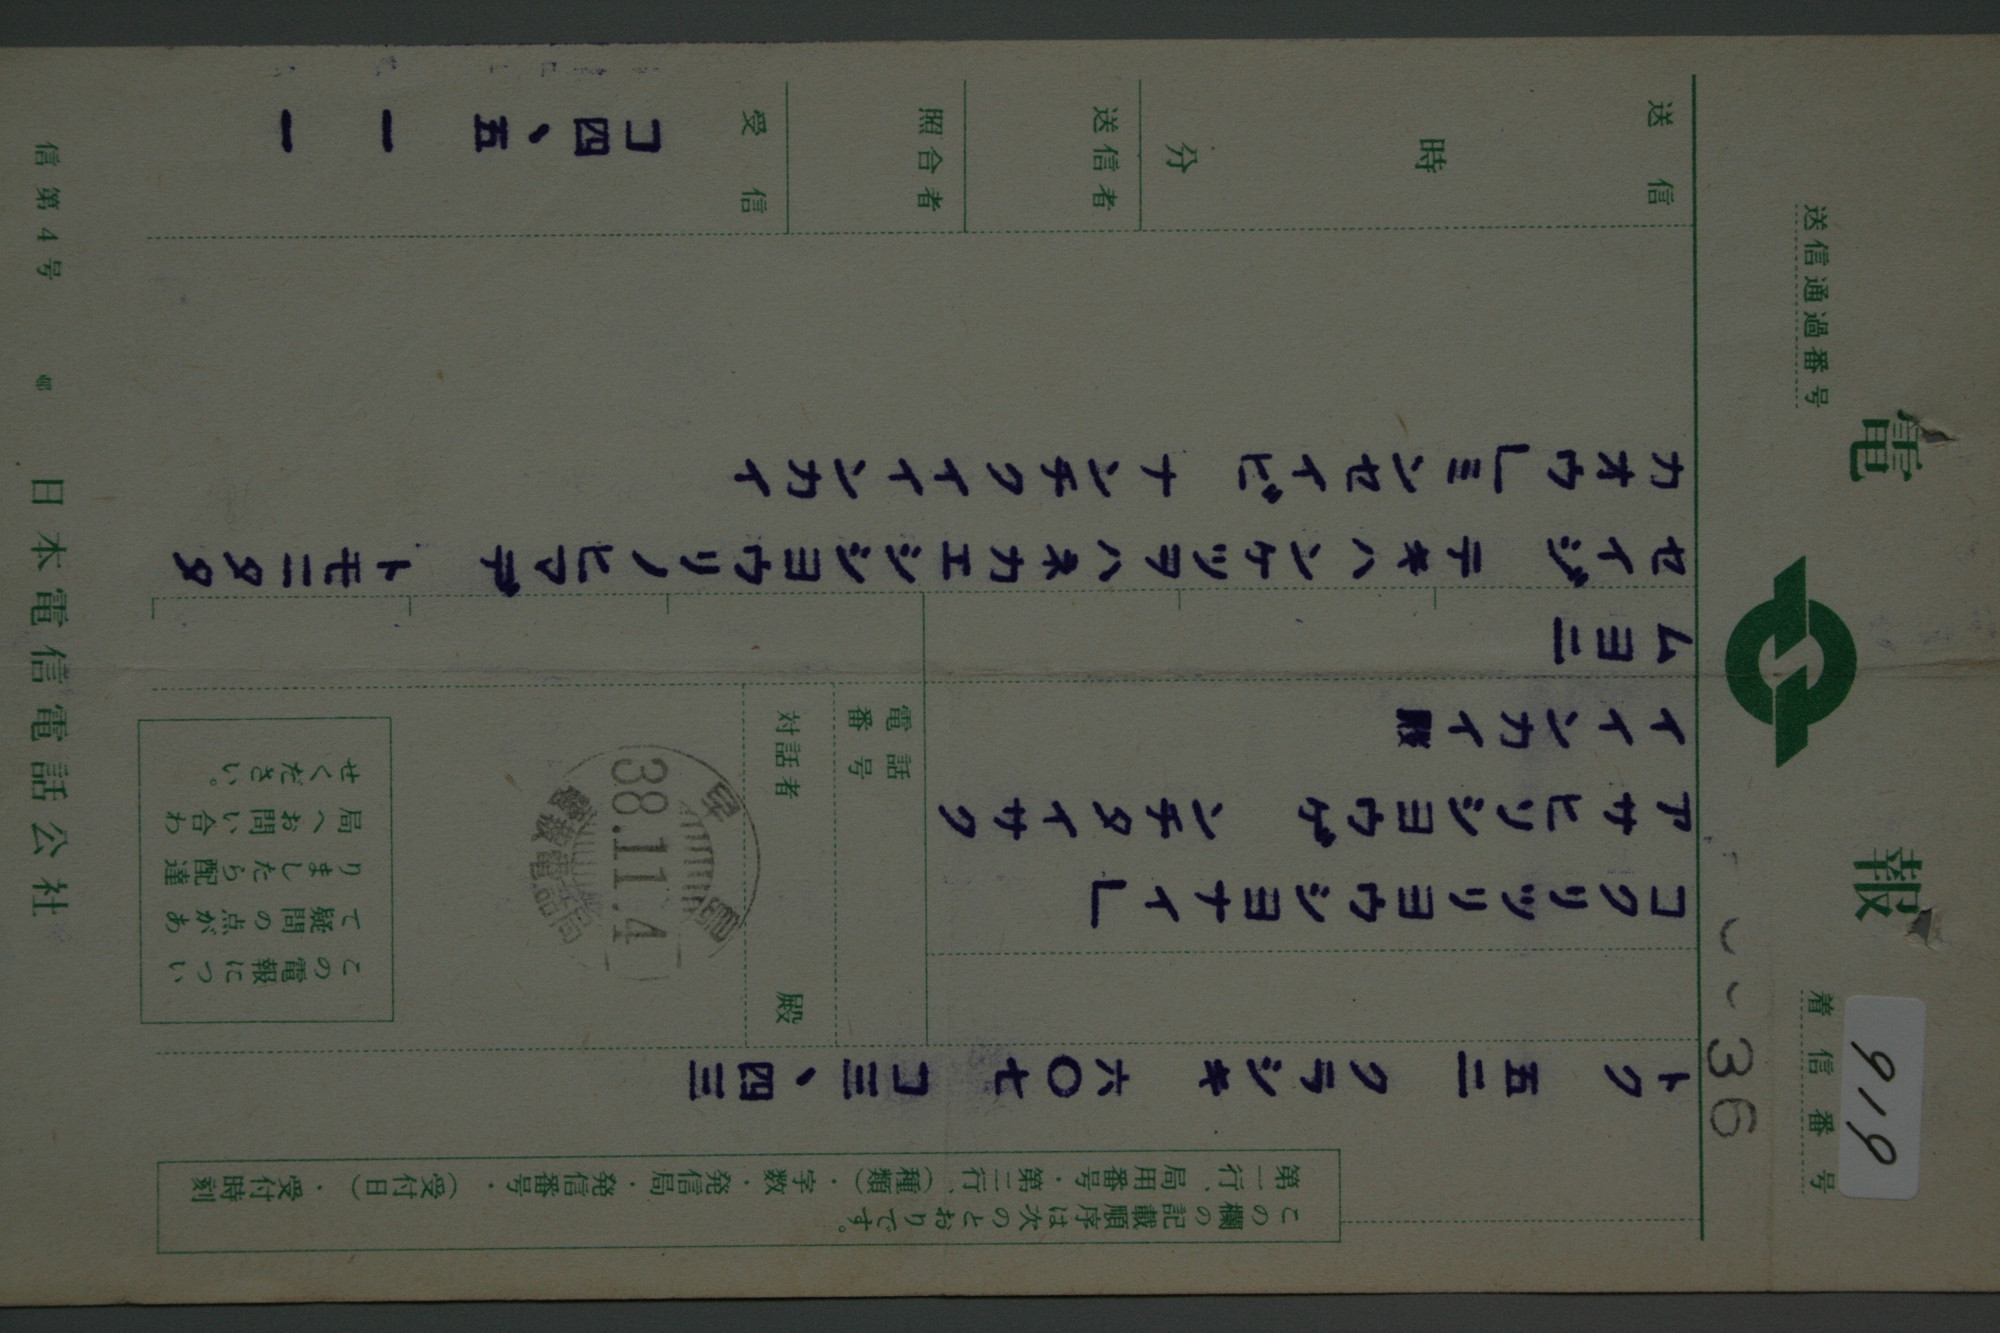 電報
送信通過番号
着信番号
919
36
この欄の記載順序は次のとおりです。
第一行、局用番号・第二行、(種類)・字数・発信局・発信番号・(受付日)・受付時刻
トク 五二 クラシキ 六〇七 コ三、四三
コクリツリヨウシヨナイ」
アサヒソシヨウゲンチタイサク
イインカイ殿
電話番号
対話者 殿
38.11.4
この電報につい
て疑問の点があ
りましたら配達
局へお問い合わ
せください。
ムヨニ
セイジテキハンケツヲハネカエシシヨウリノヒマデトモニタタ
カオウ」ミンセイビナンチクイインカイ
送信
時
分
送信者
照合者
受信
コ四、五 一 一
信第4号
日本電信電話公社